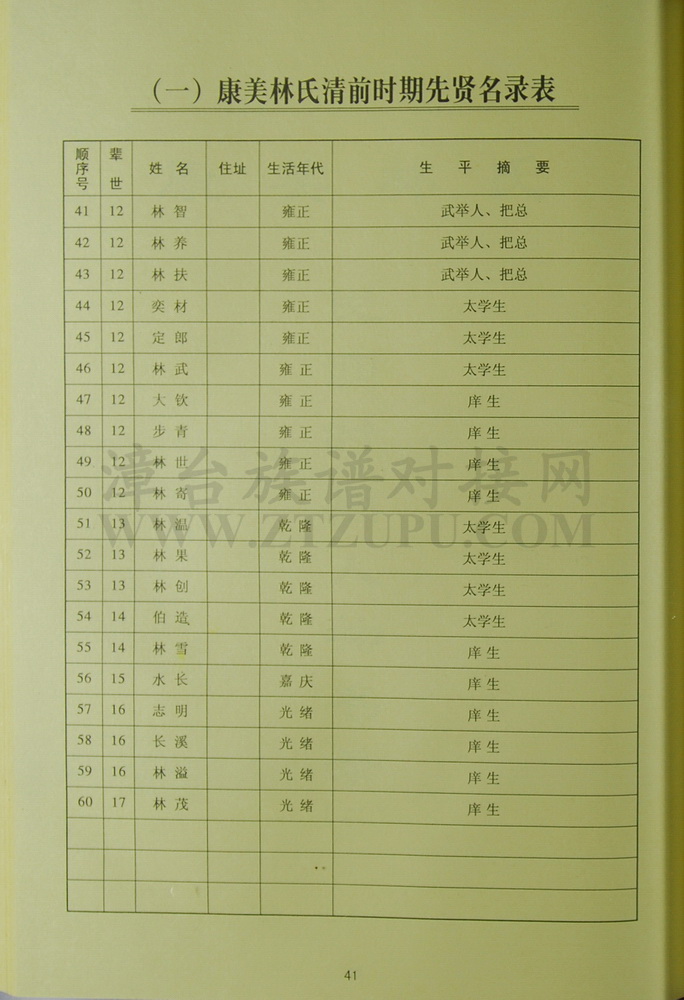 （一）康美林氏清前时期先贤名录表
顺序号 辈世 姓 名 住址 生活年代 生 平 摘 要
41 12 林 智 雍正 武举人、把总
42 12 林 养 雍正 武举人、把总
43 12 林 扶 雍正 武举人、把总
44 12 奕 材 雍正 太学生
45 12 定 郎 雍正 太学生
46 12 林 武 雍 正 太学生
47 12 大 钦 雍 正 庠 生
48 12 步 青 雍 正 庠 生
49 12 林 世 雍 正 庠 生
50 12 林 寄 雍 正 庠 生
51 13 林 温 乾 隆 太学生
52 13 林 果 乾 隆 太学生
53 13 林 创 乾 隆 太学生
54 14 伯 造 乾 隆 太学生
55 14 林 雪 乾 隆 庠 生
56 15 水 长 嘉 庆 庠 生
57 16 志 明 光 绪 庠 生
58 16 长 溪 光 绪 庠 生
59 16 林 溢 光 绪 庠 生
60 17 林 茂 光 绪 庠 生
漳台族谱对接网
WWW.ZTZUPU.COM
41